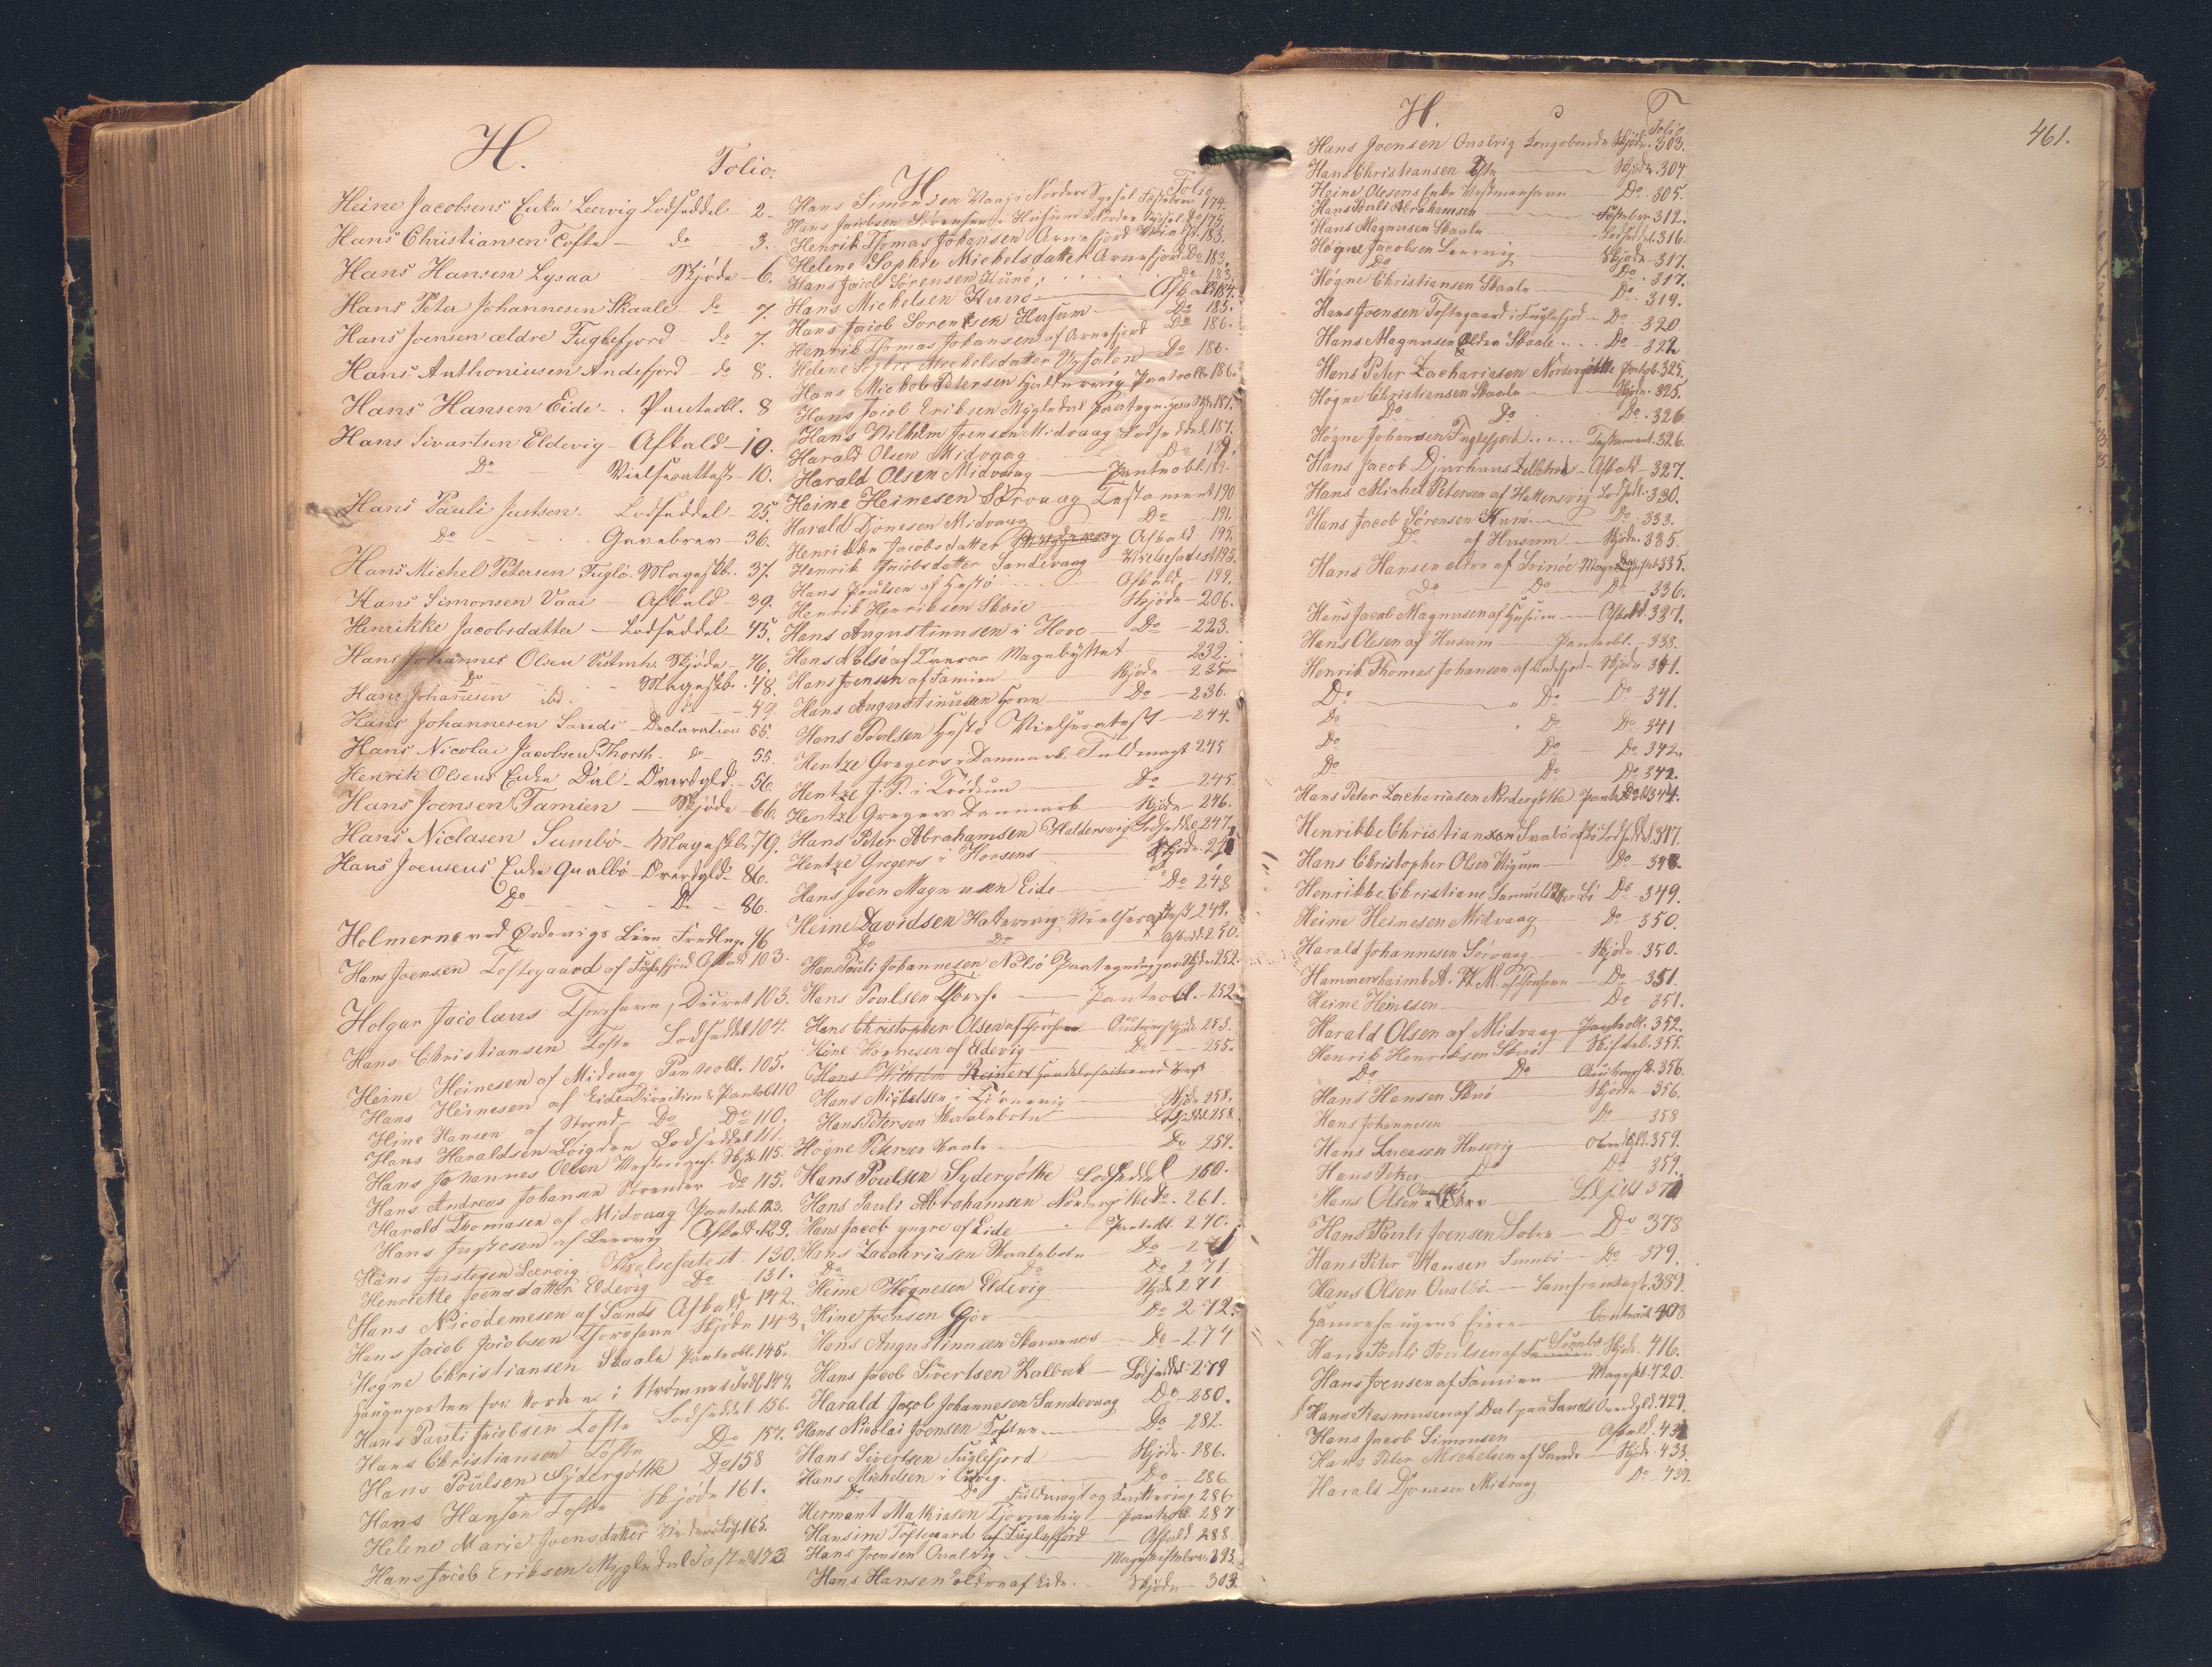 H.
Folio.
Heine Jacobsens Enke Leervig Lodseddel - 2.
Hans Christiansen Tofte - do 3.
Hans Hansen Lysaa - Skjøde - 6.
Hans Peter Johannesen Skaale do - 7.
Hans Joensen ældre Fuglefjord - do 7.
Hans Anthoniusen Andefjord - do 8.
Hans Hansen Eide - Panteobl. 8
Hans Sivartsen Eldevig - Afkald - 10.
Do - Vielsesattest - 10.
Hans Pauli Justsen - Lodseddel - 25.
do - - Gavebrev - 36.
Hans Michel Petersen Fuglø - Mageskb. 37.
Hans Simonsen Vaai - Afkald - 39.
Henrikke Jacobsdatter - Lodseddel - 45.
Hans Johannes Olsen Vestmh. Skjøde - 46.
Do - Mageskb. 48.
Hans Johannesen ibd. - - 49.
Hans Johannesen Sands - Declaration 55.
Hans Nicolai Jacobsen Thorsh. do - 55.
Henrik Olsens Enke Dal - Overdgld. - 56.
Hans Joensen Famien - Skjøde - 66.
Hans Niclasen Sumbø - Mageskb. 79.
Hans Joensens Enke Qualbø - Overdgld - 86.
Do - - D. - 86.
Holmerne ved Ordevigs Lien Fredlys. 96
Hans Joensen Toftegaard af Fuglefjord Afkald 103.
Holger Jacolaus Thorshavn, Decret 103.
Hans Christiansen Tofte Lodseddel 104.
Heine Heinesen af Midvaag Panteobl. 105.
Hans Heinesen af Eide Direction & Pantobl 110
Heine Hansen af Strond Do Do 110.
Hans Haraldsen Loigden Lodseddel 111.
Hans Johannes Olsen Skjd. 115.
Hans Andreas Johansen Strender do 115.
Harald Thomasen af Midvaag Panteob. 123.
Hans Justesen af Leervig Afkald 129.
Hans Justesen Leervig Vielsesatest 130.
Henriette Joensdatter Eldevig Do 131.
Hans Nicodemesen af Sands Afkald 142.
Hans Jacob Jacobsen Thorshavn Skjøde 143.
Høgne Christiansen Skaale Panteobl. 145.
Haugeparten for Norden i Strømnes Fredl. 149.
Hans Pauli Jacobsen Tofte Lodseddel 156.
Hans Christiansen Tofte Do 157.
Hans Poulsen Sydergøthe Do 158
Hans Hansen Tofte Skjøde 161.
Helene Marie Joensdatter 165.
Hans Jacob Eriksen Mygledal Fæsted 173
H.
Folio
Hans Simonsen Vaaji Norderø Syssel Fæstebrev 174.
Hans Jacobsen Sørensen i Husum Norder Syssel do 175.
Henrik Thomas Johansen Arnefjord 183.
Helene Sophie Michelsdatter Arnefjord Do 183.
Hans Jacob Sørensen Kunø, Do 183.
Hans Michelsen Kunø - Afkald 184.
Hans Jacob Sørensen Husum - Do 185.
Henrik Thomas Johansen af Arnefjord Do 186.
Helene Sophie Michelsdatter Do 186.
Hans Michel Petersen Haldersvig Panteobl. 186.
Hans Jacob Eriksen Mygledal Paategn. paa Skjøde 187.
Hans Vilhelm Joensen Midvaag Lodseddel 187.
Harald Olsen Midvaag Do 189.
Harald Olsen Midvaag - Panteobl. 189.
Heine Heinesen Sørvaag Testament 190
Harald Djonesen Midvaag Do - 191.
Henrikke Jacobsdatter Afkald 195.
Henrik Jacobsdatter Sandevaag - Vielsesattest 195.
Hans Poulsen af Hestø Afkald - 199.
Henrik Henriksen Skaale Skjøde - 206.
Hans Augustinusen i Hove - Do - 223.
Hans Nolsø af Magebyttet 232.
Hans Joensen af Famien Skjøde 235
Hans Augustinusen Hove - Do - 236.
Hans Poulsen Hestø Vielsesatest - 244.
Hentze Gregers i Danmark Fuldmagt 245
Hentze J. P. i Trodum Do - 245.
Hentze Gregers Danmark Skjøde - 246.
Hans Peter Abrahamsen Haldersvig Lodseddel 247.
Hentze Gregers i Horsens Skjøde. 271
Hans Joen Magnusen Eide - Do 248
Heine Davidsen Hatervig Vielsesatest 249.
Do Do Afkald 250.
Hans Pauli Johannesen Nolsø Paategning paa Skjøde 252.
Hans Poulsen Thorsh. - Panteobl. - 252.
Hans Christopher Olsen af Thorshavn - Auctionsskjøde 253.
Heine Høgnesen af Eldevig - Do - 255.
Hans Wilhelm Reinert
Hans Michelsen i Skjøde 258.
Hans Petersen Skaalebotn Lodseddel 258.
Høgne Petersen Skaale - Do - 259.
Hans Poulsen Sydergøthe Lodseddel 260.
Hans Pauli Abrahamsen Do. 261.
Hans Jacob yngre af Eide Panteobl. 270.
Hans Zachariasen Skaalebotn - Do - 271
Do Do Do 271
Heine Høgnesen Eldevig Skjøde 271
Heine Joensen Gjov Do 272.
Hans Augustinusen Skarenæs - Do - 274
Hans Jacob Sivertsen Kalbak - Lodseddel - 279
Harald Jacob Johannesen Sandevaag Do - 280.
Hans Nicolai Joensen Toftene Do - 282.
Hans Sivertsen Fuglefjord Skjøde - 286.
Hans Michelsen i Do - 286
Do Do Fuldmagt og Kvittering. 286
Hermant Mathiasen Panteobl. 287
Hansine Toftegaard af Fuglefjord - Afkald 288.
Hans Joensen Qvalvig - Mageskiftebrev 293
Hans Hansen ældre af Eide Skjøde 303.
H.
Folio
461.
Hans Joensen Qvalvig Kongsbonde Skjøde. 303.
Hans Christiansen Tofte Skjøde. 304.
Heine Olesens Enke Vestmanhavn Do. 305.
Hans Pauli Abrahamsen Fæstebrev 312.
Hans Magnusen Skaale - Lodseddel 316.
Høgne Jacobsen Leervig Skjøde 317.
Do Do. 317.
Høgne Christiansen Skaale - Do. 319.
Hans Joensen Toftegaard i Fuglefjord - Do 320.
Hans Magnusen Ældre Skaale Do - 322
Hans Peter Zachariasen Nordergøthe Panteobl. 325.
Høgne Christiansen Skaale Skjøde. 325.
Do Do Do. 326
Høgne Johansen Fuglefjord Testament. 326.
Hans Jacob Djurhuus - Afkald - 327.
Hans Michel Petersen af Hattervig Lodsedl. 330.
Hans Jacob Sørensen Kunø - Do - 333.
Do af Husum Skjøde. 335.
Hans Hansen ældre af Svinøe 335.
do - Do - Do - 336.
Hans Jacob Magnusen af Husum Afkald. 337.
Hans Olesen af Husum - Panteobl. - 338.
Henrik Thomas Johansen af Andefjord - Skjøde. 341.
Do Do - Do - 341.
Do Do Do 341
Do Do - Do 342.
Do Do Do 342.
Hans Peter Zachariasen Nordergøthe Panteobl 344.
Henrikke Christiansen Lodseddel. 347.
Hans Christopher Olsen Vigum Do - 348
Henrikke Christiane Bø Do - 349.
Heine Heinesen Midvaag Do - 350.
Harald Johannesen Sørvaag Skjøde - 350.
Hammershaimb A. W. M. af Thorshavn - Do - 351.
Heine Heinesen Do - 351.
Harald Olsen af Midvaag Panteobl. 352.
Henrik Henriksen Skuø Skiftebl. 355.
Do Do 356.
Hans Hansen Skuø Skjøde - 356.
Hans Johannesen Do 358
Hans Lucasen Husevig Overdgld. 359.
Hans Peter Do Do 359.
Hans Olsen Qvalbø Lodseddel 371
Hans Pauli Joensen Lobre - Do 378
Hans Peter Hansen Sumbø - Do - 379.
Hans Olsen Qvalbø - Samfrændsgt. 389.
Contract 408
Hans Pouli Poulsen af Sumbø Skjøde. 416.
Hans Joensen af Famien Mageskb. 420.
Hans Rasmusen af Dal paa Sands Overdgld. 429.
Hans Jacob Simonsen Afkald. 431
Hans Peter Michelsen af Sands Skjøde. 433.
Harald Djonesen Midvaag Do - 439.